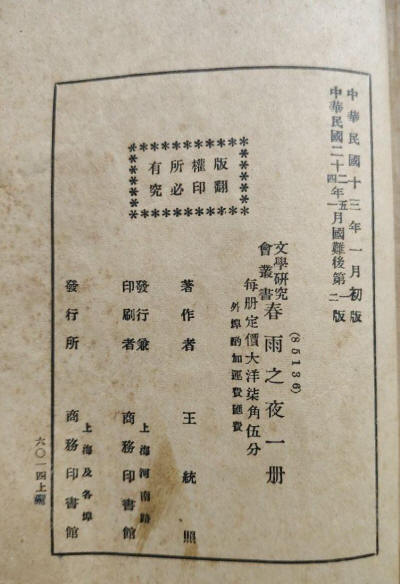 中華民國十三年一月初版
中華民國二十二四年五一月國難後第一二版
版權所有
翻印必究
(85136)
文學研究會叢書 春雨之夜一册
每册定價大洋柒角伍分
外埠酌加運費匯費
著作者 王統照
發行兼印刷者 上海河南路 商務印書館
發行所 上海及各埠 商務印書館
六〇一四上